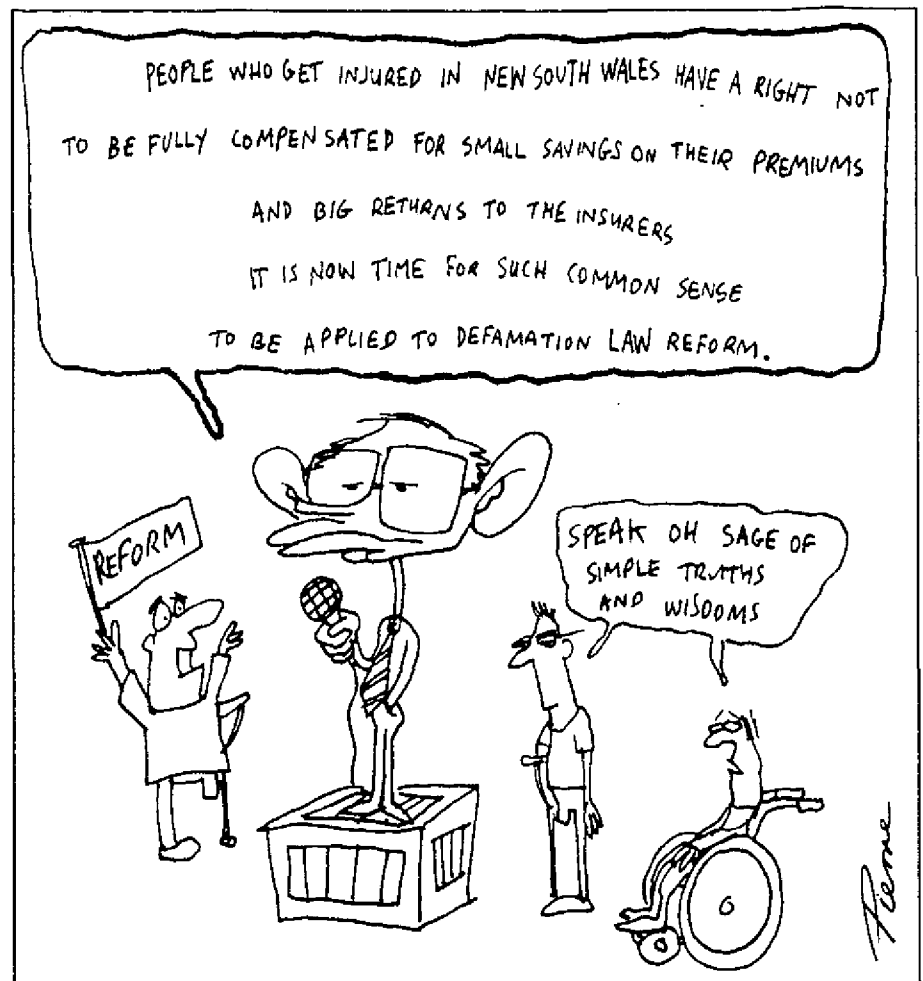 PEOPLE WHO GET INJURED IN NEW SOUTH WALES HAVE A RIGHT NOT
TO BE FULLY COMPENSATED FOR SMALL SAVINGS ON THEIR PREMIUMS
AND BIG RETURNS TO THE INSURERS
IT IS NOW TIME FOR SUCH COMMON SENSE
TO BE APPLIED TO DEFAMATION LAW REFORM.
REFORM
SPEAK OH SAGE OF
SIMPLE TRUTHS
AND WISDOMS